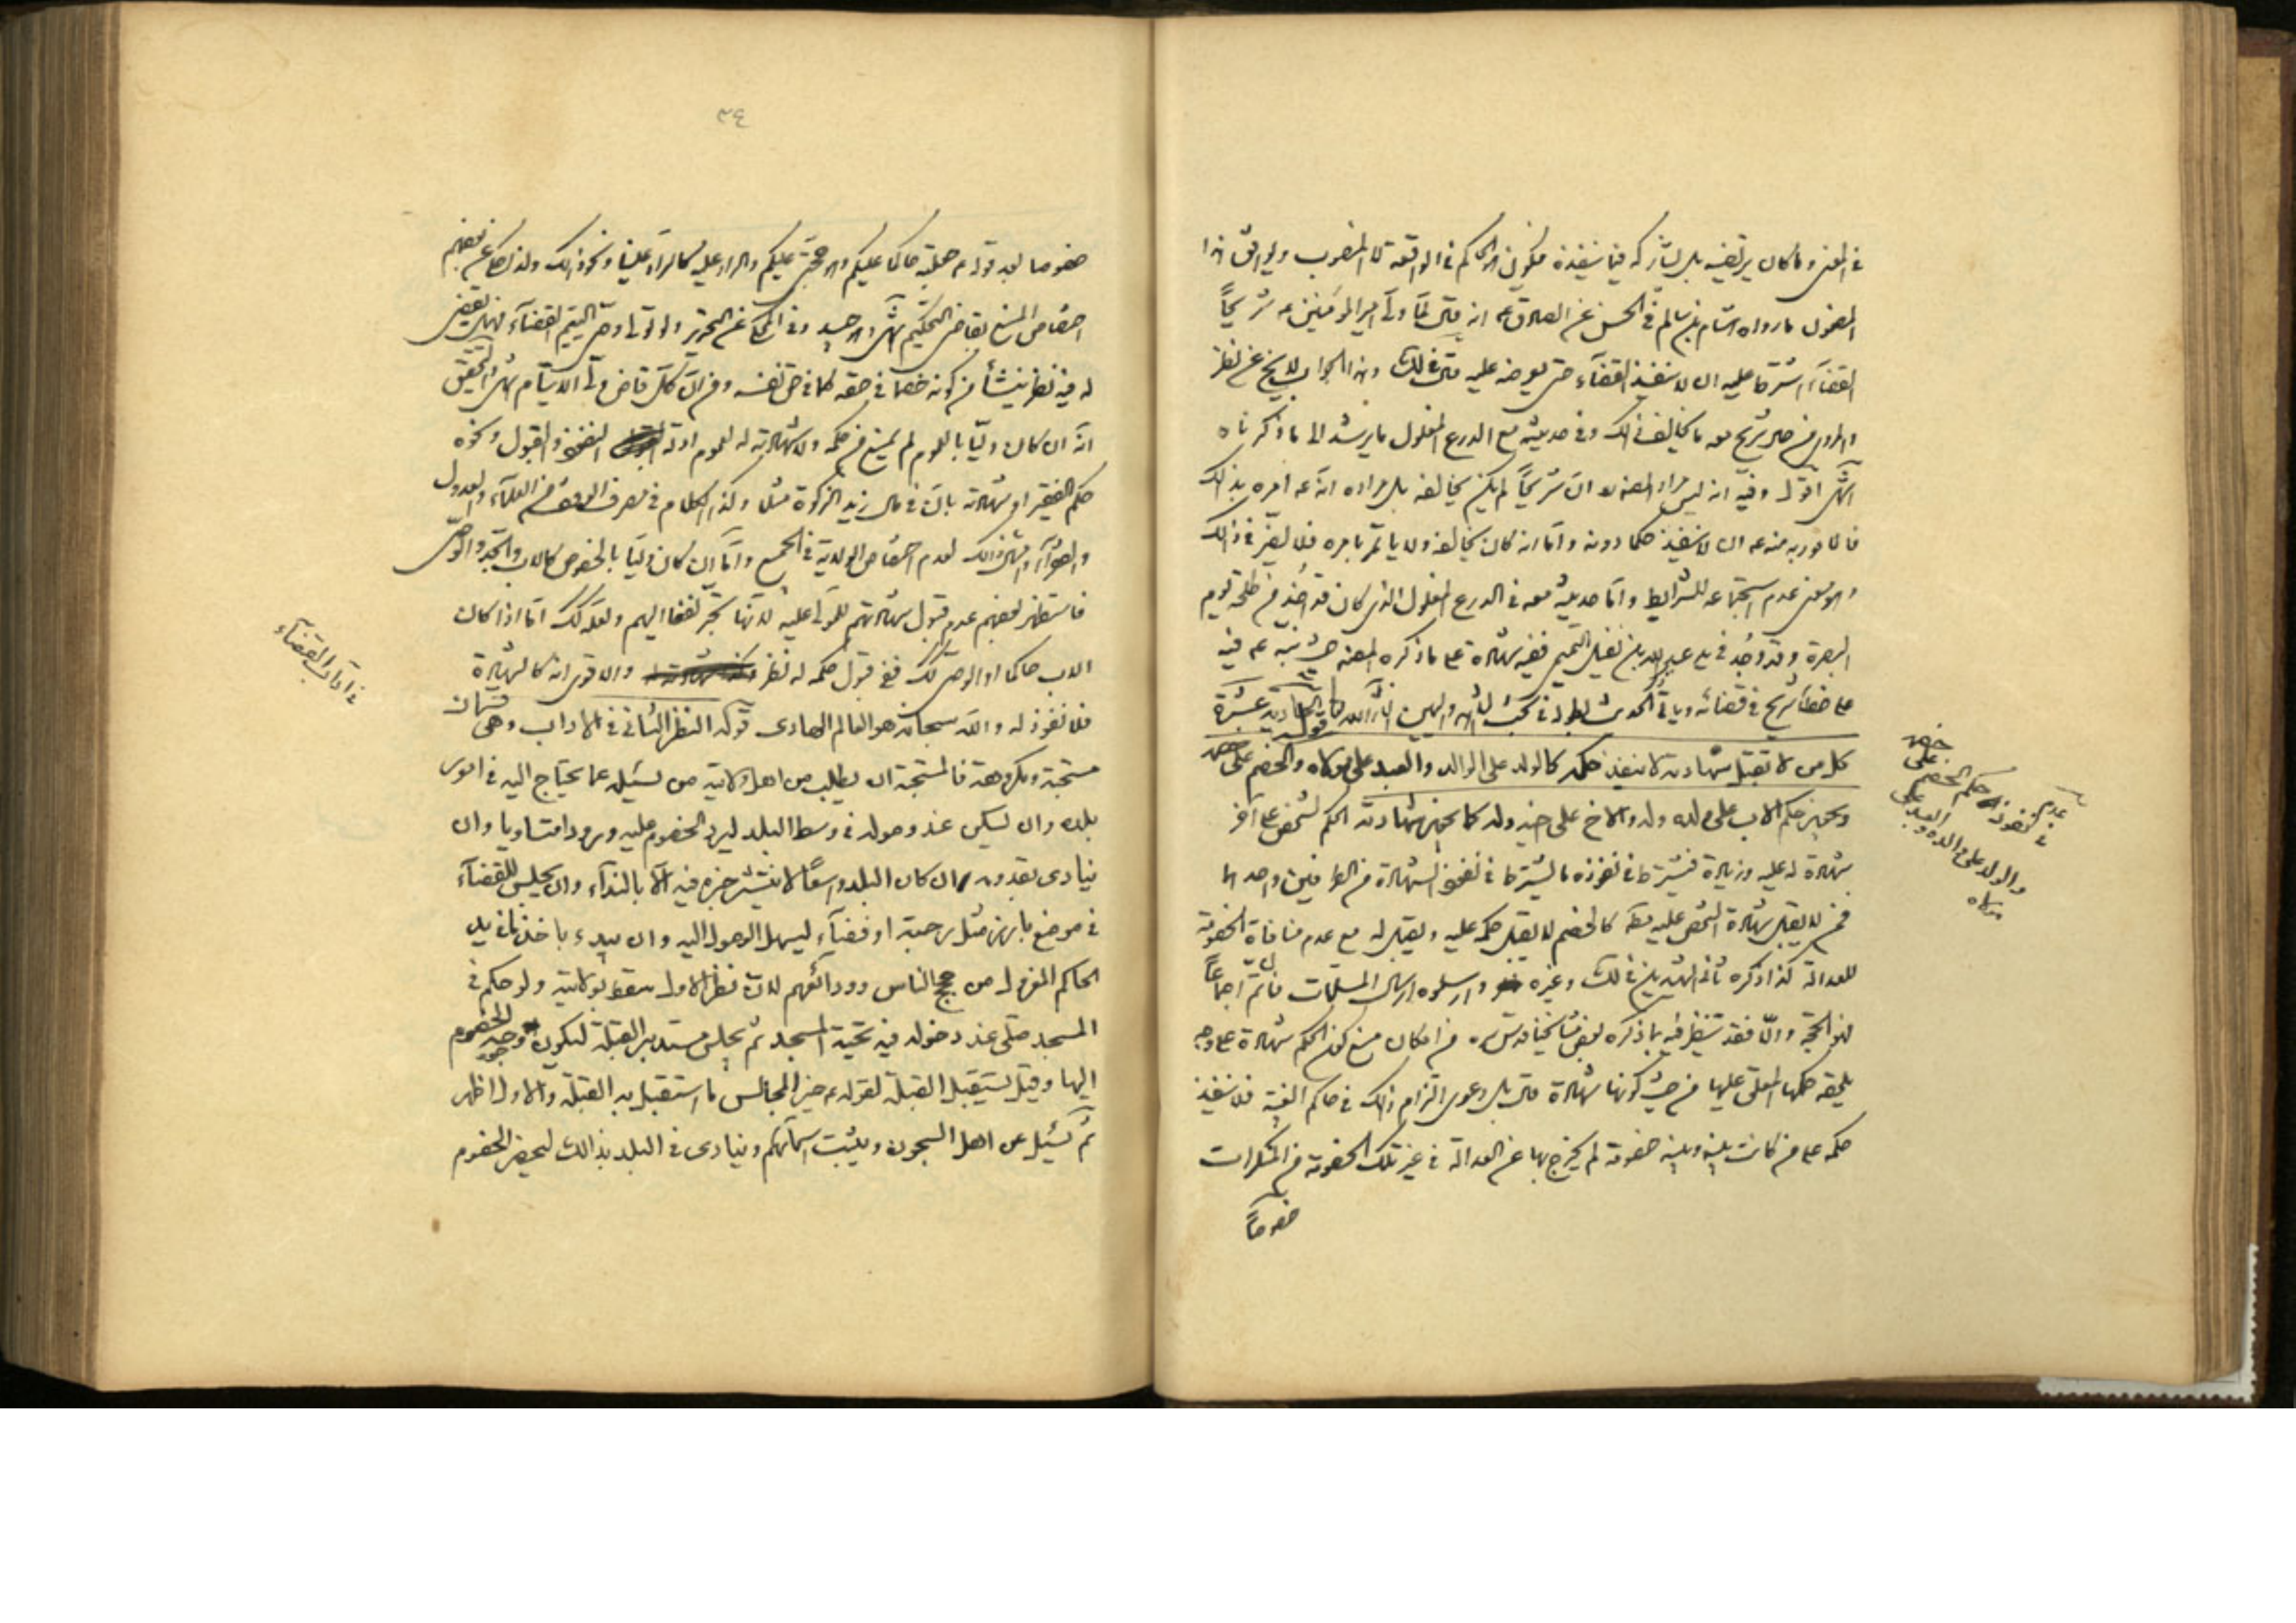 في المعنى وما كان يرتضيه بل يشاركه فيما ينفذه فيكون هو الحاكم في الواقعة لا المنصوب ويوافق هذا
المضمون ما رواه هشام بن سالم في الحسن عن الصادق ع انه قال لما ولى امير المؤمنين ع شريحاً
القضاء اشترط عليه ان لا ينفذ القضاء حتى يعرضه عليه قال في لك وهذا الجواب لا يخ عن نظر
والمروي من حال شريح معه ما يخالف ذلك وفي حديثه مع الدرع الغلول ما يرشد الى ما ذكرناه
انتهى اقول وفيه انه ليس مراد المصنف ان شريحاً لم يكن يخالفه بل مراده انه ع امره بذلك
فالمأمور به منه ع ان لا ينفذ حكما دونه واما انه كان يخالفه ولا ياتمر بامره فلا يضر في ذلك
وهو معنى عدم استجماعه للشرايط واما حديثه معه في الدرع الغلول الذي كان قد اخذ من طلحة يوم
البصرة وقد وجد في يد عبد الله بن قفل التميمي ففيه شهادة على ما ذكره المصنف حيث نبه ع فيه
على خطأ شريح في قضائه وياتي الحديث بطوله في بحث الشاهد واليمين انشاء الله تعالى قوله الحادية عشرة
كل من لا تقبل شهادته لا ينفذ حكمه كالولد على الوالد والعبد على مولاه والخصم على خصمه
ويجوز حكم الاب على ولده وله والاخ على اخيه وله كما يجوز شهادته الحكم لشخص على آخر
شهادة له عليه وزيادة فيشترط في نفوذه ما يشترط في نفوذ الشهادة من الطرفين واحدهما
فمن لا يقبل شهادة الشخص عليه مط كالخصم لا يقبل حكمه عليه ويقبل له مع عدم منافاة الخصومة
للعدالة كذا ذكره ثاني الشهيدين في لك وغيره وارسلوه ارسال المسلمات فان تم اجماعاً
فهو الحجة والا فقد تنظر فيه بما ذكره بعض مشايخنا قدس سره من امكان منع كون الحكم شهادة على وجه
يلحقه حكمها المعلق عليها من حيث كونها شهادة قال بل دعوى التزام ذلك في حاكم الغيبة فلا ينفذ
حكمه على من كانت بينه وبينه خصومة لم يخرج بها عن العدالة في غير تلك الخصومة من المنكرات
خصوصاً
في عدم نفوذ حكم الخصم على خصمه
والولد على والده والعبد على
مولاه
٣٤
خصوصا بعد قوله ع جعلته حاكما عليكم وهو حجتي عليكم والراد عليه كالراد علينا ونحو ذلك ولذا حكى عن بعضهم
اختصاص المنع بقاضي التحكيم انتهى وهو جيد وفي المحكي عن التحرير ولو تولى وصى اليتيم القضاء فهل يقضى
له فيه نظر ينشأ من كونه خصما في حقه كما في حق نفسه ومن ان كل قاض ولى الايتام انتهى والتحقيق
انه ان كان وليا بالعموم لم يمنع من حكمه ولا شهادته له لعموم ادلة النفوذ والقبول ونحوه
حكم الفقير او شهادته بان في مال زيد الزكوة مثلا وكذا الكلام في مصرف الوقف من العلماء والعدول
والفقراء وامثال ذلك لعدم اختصاص الولاية في الجميع واما ان كان وليا بالخصوص كالاب والجد والوصى
فاستظهر بعضهم عدم قبول شهادتهم للمولى عليه لانها تجر نفعا اليهم ولعله لك اما اذا كان
الاب حاكما او الوصى لك ففي قبول حكمه له نظر والاقوى انه كالشهادة
فلا نفوذ له والله سبحانه هو العالم الهادى قوله النظر الثاني في الاداب وهي قسمان
مستحبة ومكروهة فالمستحبة ان يطلب من اهل ولايته من يسئله عما يحتاج اليه في امور
بلده وان يسكن عند وصوله في وسط البلد ليرد الخصوم عليه ورودا متساويا وان
ينادى بقدومه ان كان البلد واسعاً لا ينتشر خبره فيه الا بالنداء وان يجلس للقضاء
في موضع بارز مثل رحبة او فضاء ليسهل الوصول اليه وان يبدء باخذ ما في يد
الحاكم المعزول من حجج الناس وودائعهم لان نظر الاول سقط بولايته ولو حكم في
المسجد صلى عند دخوله فيه تحية المسجد ثم يجلس مستدبر القبلة ليكون وجه الخصوم
اليها وقيل يستقبل القبلة لقوله ع خير المجالس ما استقبل به القبلة والاول اظهر
ثم يسئل عن اهل السجون ويثبت اسمائهم وينادى في البلد بذالك ليحضر الخصوم
في اداب القضاء